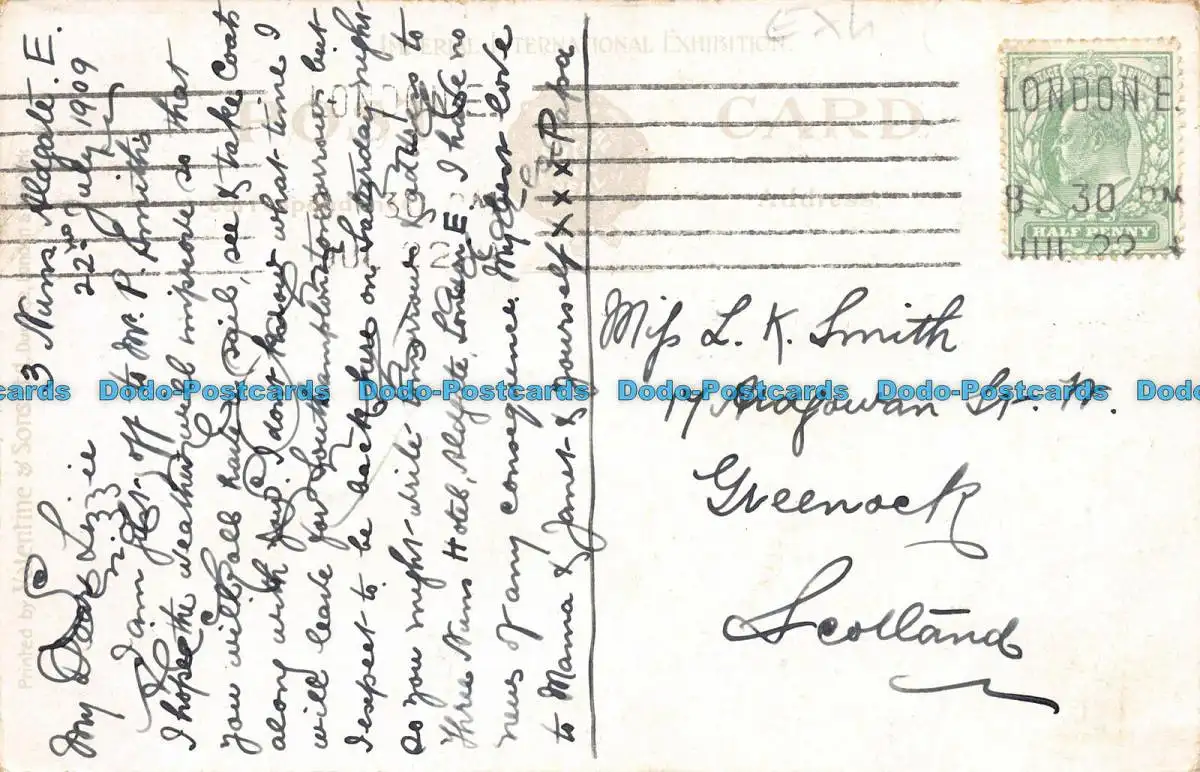 IMPERIAL INTERNATIONAL EXHIBITION.
Exh
POST CARD
Address
Printed by Valentine & Sons
LONDON. E.
8. 30 PM
JUL 22
HALF PENNY
3 Nuns. Aldgate. E.
22nd July 1909
My Dear Lizzie
I am just off to Mr. P. Smith's
I hope the weather will improve so that
you will all have a sail, see & take Coats
along with you. I don't know what time I
will leave for Southampton tomorrow but
I expect to be back here on Saturday night
so you might write tomorrows to
Three Nuns Hotel, Aldgate, London E. I have no
news of any consequence. My dear love
to Mama & Janet & yourself x x x x Papa
Miss L. K. Smith
17 Ardgowan St. W.
Greenock
Scotland
Dodo-Postcards Dodo-Postcards Dodo-Postcards Dodo-Postcards Dodo-Postcards